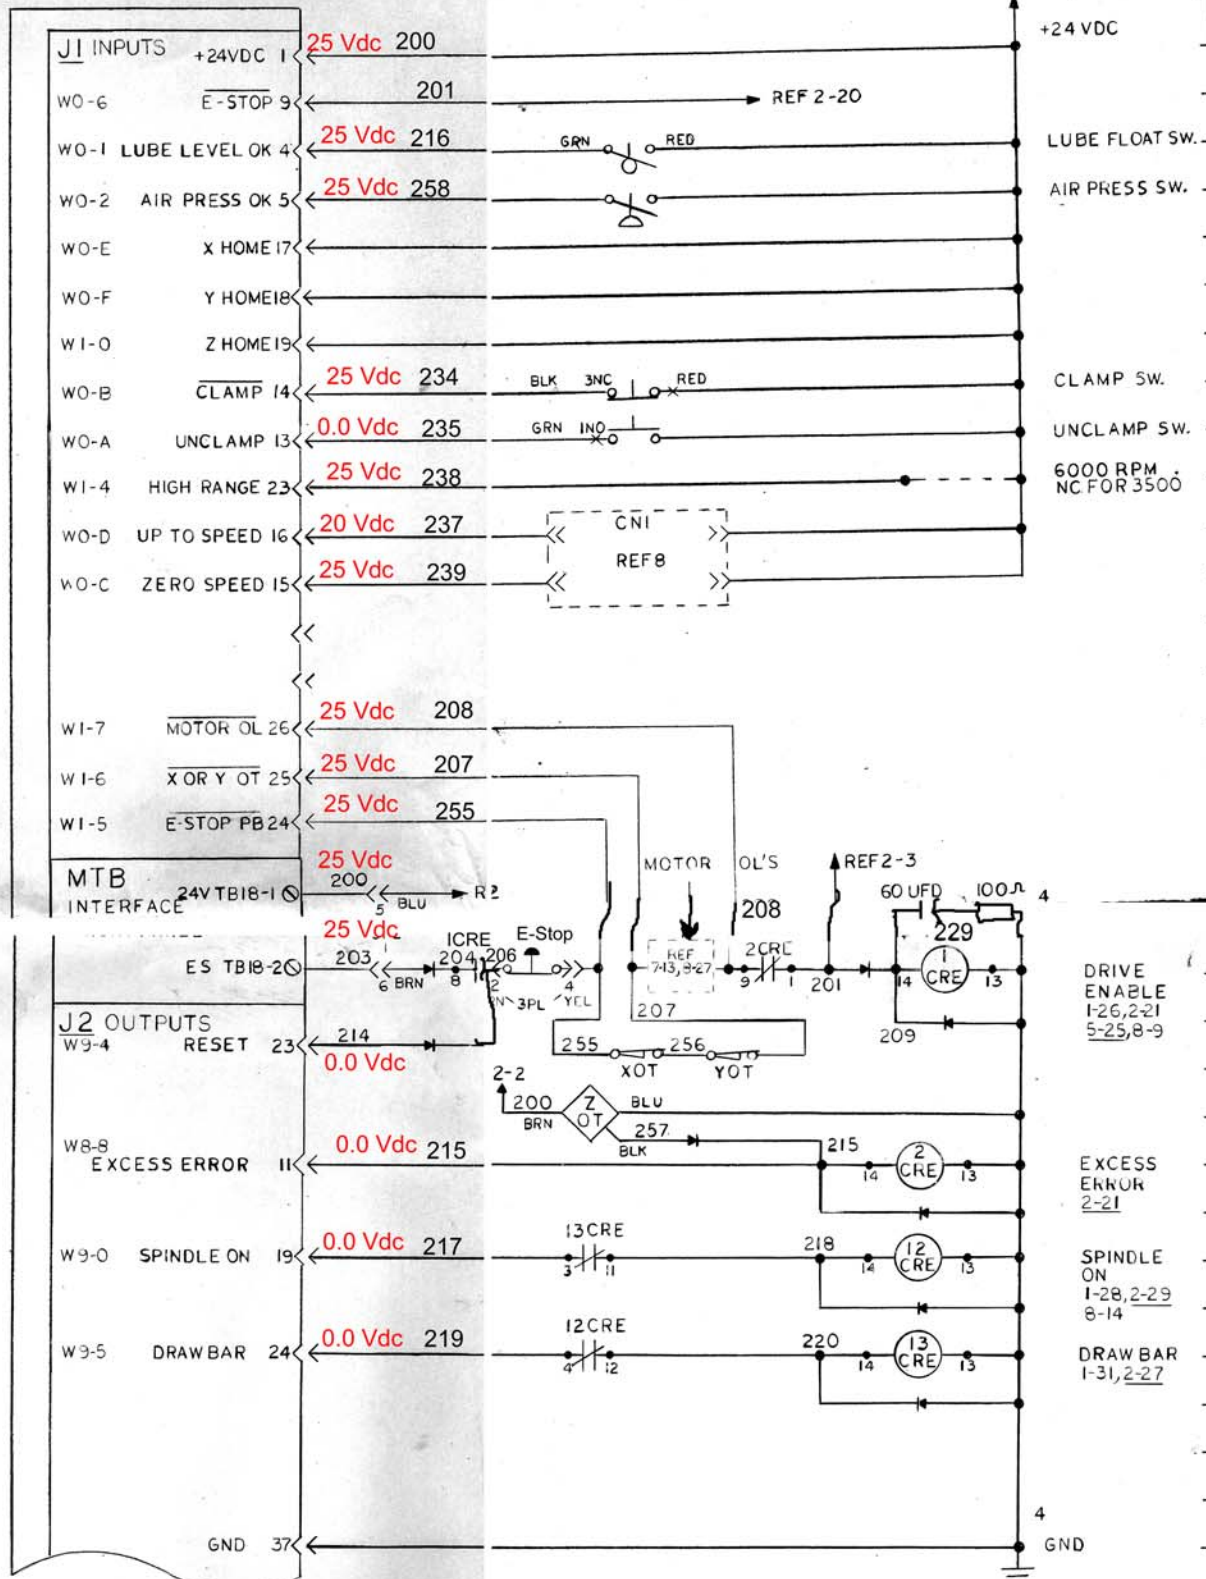 +24 VDC
J1 INPUTS +24VDC 1 25 Vdc 200
W0-6 E-STOP 9 201 REF 2-20
W0-1 LUBE LEVEL OK 4 25 Vdc 216 GRN RED LUBE FLOAT SW.
W0-2 AIR PRESS OK 5 25 Vdc 258 AIR PRESS SW.
W0-E X HOME 17
W0-F Y HOME 18
W1-0 Z HOME 19
W0-B CLAMP 14 25 Vdc 234 BLK 3NC RED CLAMP SW.
W0-A UNCLAMP 13 0.0 Vdc 235 GRN 1NO UNCLAMP SW.
W1-4 HIGH RANGE 23 25 Vdc 238 6000 RPM
NC FOR 3500
W0-D UP TO SPEED 16 20 Vdc 237 CN1
REF8
W0-C ZERO SPEED 15 25 Vdc 239
W1-7 MOTOR OL 26 25 Vdc 208
W1-6 X OR Y OT 25 25 Vdc 207
W1-5 E-STOP PB 24 25 Vdc 255
MOTOR OL'S REF2-3
MTB
INTERFACE 24V TB18-1 25 Vdc 200 5 BLU
60 UFD 100Ω 4
208 229
ES TB18-2 25 Vdc 203 6 BRN 204 8 1CRE 206 2 E-Stop 4 3PL YEL REF
7-13, 8-27 9 2CRE 1 201 14 1
CRE 13 DRIVE
ENABLE
1-26, 2-21
5-25, 8-9
207 209
J2 OUTPUTS
W9-4 RESET 23 214 0.0 Vdc 255 XOT 256 YOT
2-2 200 BRN Z
OT BLU
257 BLK
W8-8
EXCESS ERROR 11 0.0 Vdc 215 215 14 2
CRE 13 EXCESS
ERROR
2-21
W9-0 SPINDLE ON 19 0.0 Vdc 217 13CRE 3 11 218 14 12
CRE 13 SPINDLE
ON
1-28, 2-29
8-14
W9-5 DRAW BAR 24 0.0 Vdc 219 12CRE 4 12 220 14 13
CRE 13 DRAW BAR
1-31, 2-27
4
GND 37 GND